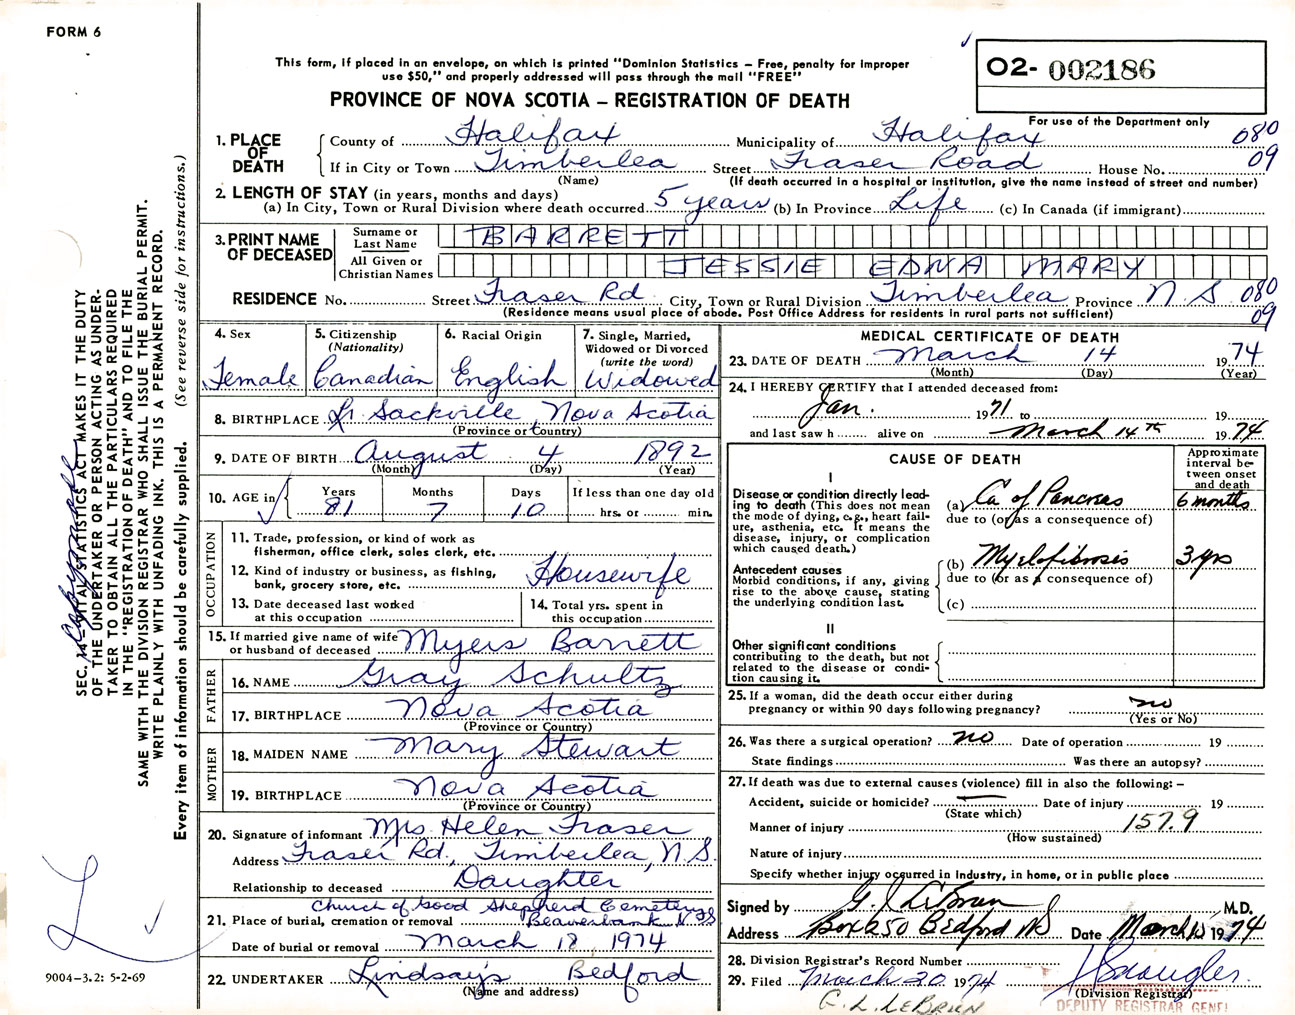 FORM 6
This form, if placed in an envelope, on which is printed "Dominion Statistics – Free, penalty for improper
use $50," and properly addressed will pass through the mail "FREE"
PROVINCE OF NOVA SCOTIA – REGISTRATION OF DEATH
O2- 002186
For use of the Department only
1. PLACE OF DEATH County of Halifax Municipality of Halifax 080
If in City or Town Timberlea Street Fraser Road House No. 09
(Name) (If death occurred in a hospital or institution, give the name instead of street and number)
2. LENGTH OF STAY (in years, months and days)
(a) In City, Town or Rural Division where death occurred 5 years (b) In Province Life (c) In Canada (if immigrant)
3. PRINT NAME OF DECEASED Surname or Last Name BARRETT
All Given or Christian Names JESSIE EDNA MARY
RESIDENCE No. Street Fraser Rd City, Town or Rural Division Timberlea Province N.S 080
(Residence means usual place of abode. Post Office Address for residents in rural parts not sufficient) 09
4. Sex Female
5. Citizenship (Nationality) Canadian
6. Racial Origin English
7. Single, Married, Widowed or Divorced (write the word) Widowed
8. BIRTHPLACE Lr. Sackville, Nova Scotia
(Province or Country)
9. DATE OF BIRTH August 4 1892
(Month) (Day) (Year)
10. AGE in Years 81 Months 7 Days 10 If less than one day old hrs. or min.
OCCUPATION
11. Trade, profession, or kind of work as
fisherman, office clerk, sales clerk, etc.
12. Kind of industry or business, as fishing,
bank, grocery store, etc. Housewife
13. Date deceased last worked
at this occupation
14. Total yrs. spent in
this occupation
15. If married give name of wife
or husband of deceased Myers Barrett
FATHER
16. NAME Gray Schultz
17. BIRTHPLACE Nova Scotia
(Province or Country)
MOTHER
18. MAIDEN NAME Mary Stewart
19. BIRTHPLACE Nova Scotia
(Province or Country)
20. Signature of informant Mrs. Helen Fraser
Address Fraser Rd., Timberlea, N.S.
Relationship to deceased Daughter
Church of Good Shepherd Cemetery
21. Place of burial, cremation or removal Beaverbank N.S
Date of burial or removal March 18 1974
22. UNDERTAKER Lindsay's Bedford
(Name and address)
MEDICAL CERTIFICATE OF DEATH
23. DATE OF DEATH March 14 1974
(Month) (Day) (Year)
24. I HEREBY CERTIFY that I attended deceased from:
Jan. 1971 to 19
and last saw h alive on March 14th 1974
CAUSE OF DEATH
Approximate interval between onset and death
I
Disease or condition directly lead-
ing to death (This does not mean
the mode of dying, e.g., heart fail-
ure, asthenia, etc. It means the
disease, injury, or complication
which caused death.)
(a) Ca of Pancreas 6 months
due to (or as a consequence of)
Antecedent causes
Morbid conditions, if any, giving
rise to the above cause, stating
the underlying condition last.
(b) Myelofibrosis 3 yrs
due to (or as a consequence of)
(c)
II
Other significant conditions
contributing to the death, but not
related to the disease or condi-
tion causing it.
25. If a woman, did the death occur either during
pregnancy or within 90 days following pregnancy? no
(Yes or No)
26. Was there a surgical operation? no Date of operation 19
State findings Was there an autopsy?
27. If death was due to external causes (violence) fill in also the following: –
Accident, suicide or homicide? Date of injury 19
(State which)
Manner of injury 157.9
(How sustained)
Nature of injury
Specify whether injury occurred in industry, in home, or in public place
Signed by M.D.
Address Box 250 Bedford NS Date March 1974
28. Division Registrar's Record Number
29. Filed March 20 1974
(Division Registrar)
G. L. LeBRUN
DEPUTY REGISTRAR GENE
SEC. VITAL STATISTICS ACT MAKES IT THE DUTY
OF THE UNDERTAKER OR PERSON ACTING AS UNDER-
TAKER TO OBTAIN ALL THE PARTICULARS REQUIRED
IN THE "REGISTRATION OF DEATH" AND TO FILE THE
SAME WITH THE DIVISION REGISTRAR WHO SHALL ISSUE THE BURIAL PERMIT.
WRITE PLAINLY WITH UNFADING INK. THIS IS A PERMANENT RECORD.
Every item of information should be carefully supplied. (See reverse side for instructions.)
9004-3.2: 5-2-69